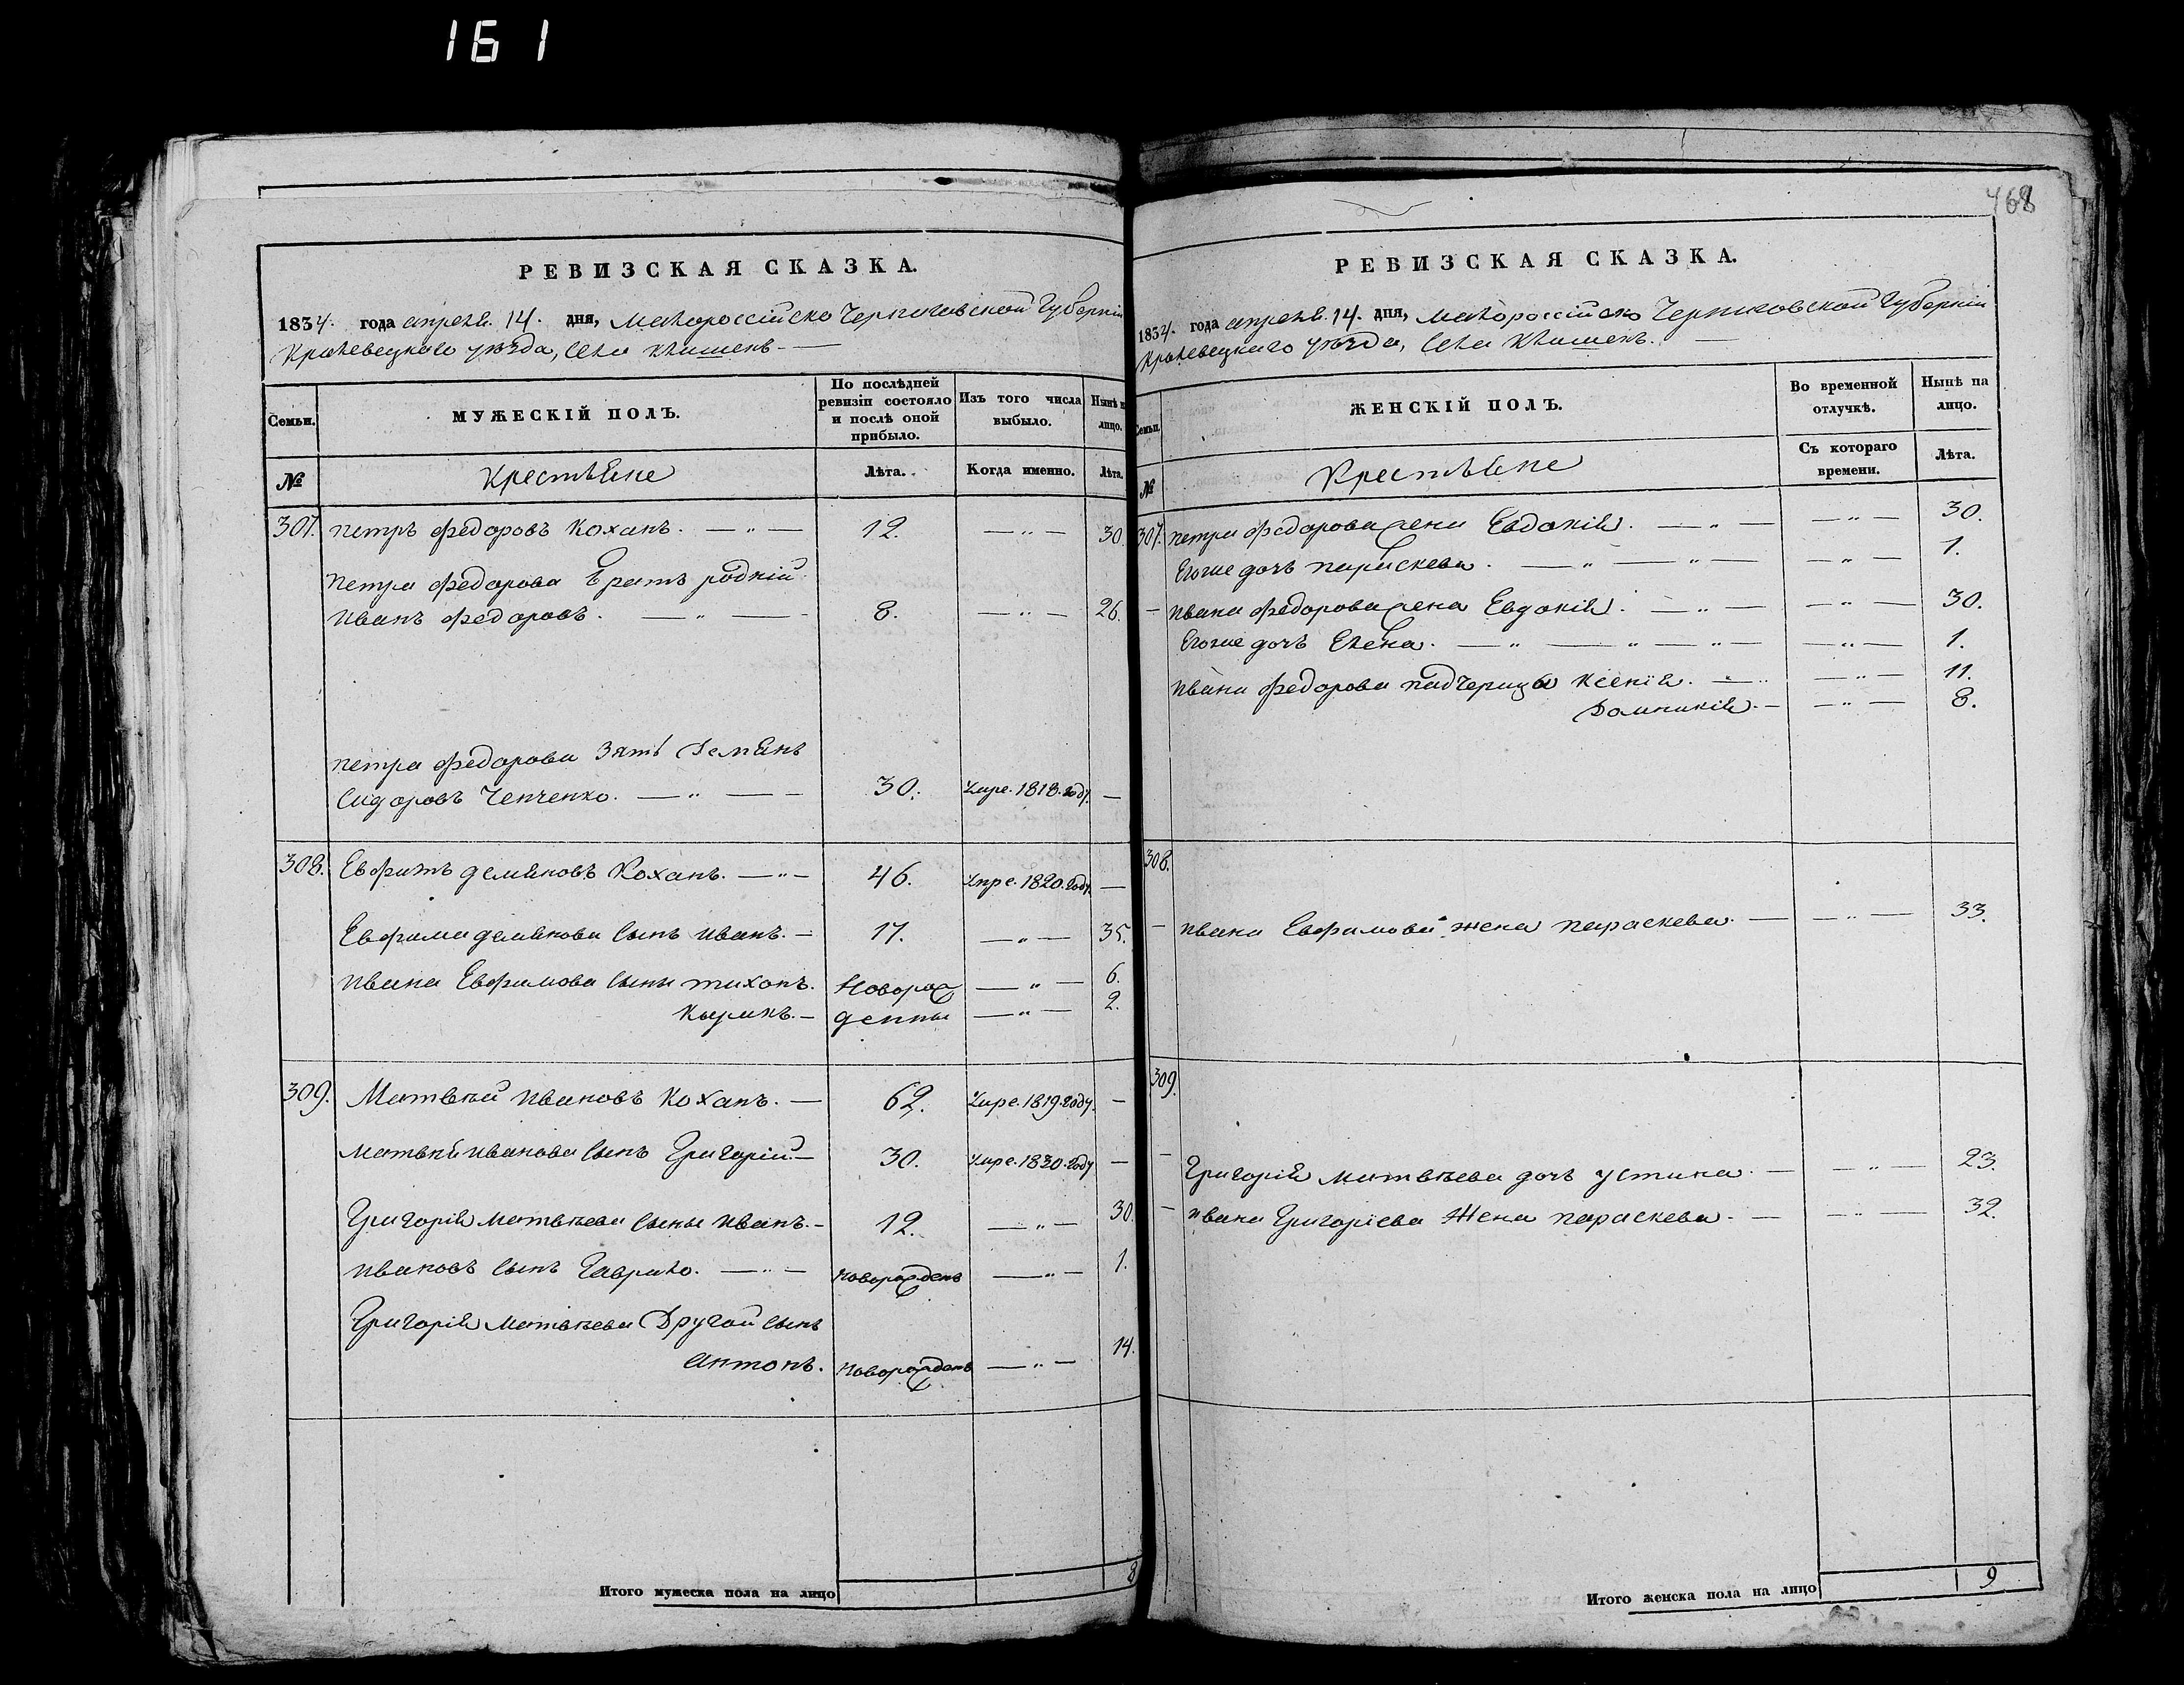 161
468
РЕВИЗСКАЯ СКАЗКА.
1834. года апреля. 14. дня, Малороссійско Черниговской Губерніи
Кролевецкаго уезда, села Клишекъ. —
Семьи.
МУЖЕСКІЙ ПОЛЪ.
По послѣдней ревизіи состояло и послѣ оной прибыло.
Изъ того числа выбыло.
Нынѣ н лицо.
№
Крестьяне
Лѣта.
Когда именно.
Лѣта.
307. Петръ Федоровъ Коханъ. — „ — 12. — „ — 30.
Петра Федорова братъ родній
Иванъ Федоровъ. — „ — 8. — „ — 26.
Петра Федорова Зять Демянъ
Сидоровъ Ченченко. — „ — 30. Умре. 1818. году. —
308. Евфимъ демяновъ Коханъ. — „ — 46. Умре. 1820. году. —
Евфима демянова сынъ Иванъ. — 17. — „ — 35.
Ивана Евфимова сыны тихонъ. Новорож — „ — 6.
Кирикъ. — денны — „ — 2.
309. Матвѣй Ивановъ Коханъ. — 62. Умре. 1819. году. —
Матвѣя Иванова сынъ Григорій. — 30. Умре. 1830. году —
Григорія Матвѣева сыны Иванъ. — 12. — „ — 30.
Ивановъ сынъ Гаврило. — „ — новорожденъ — „ — 1.
Григорія Матвѣева Другой сынъ
Антонъ. Новорожденъ — „ — 14.
Итого мужеска пола на лицо 8
РЕВИЗСКАЯ СКАЗКА.
1834. года апреля. 14. дня, Малороссійско Черниговской Губерніи
Кролевецкаго уезда, села Клишекъ. —
Семьи.
ЖЕНСКІЙ ПОЛЪ.
Во временной отлучкѣ.
Нынѣ на лицо.
№
Крестьяне
Съ котораго времени.
Лѣта.
307. Петра Федорова жена Евдокія. — „ — — „ — 30.
Егоже дочь параскева. — „ — „ — — „ — 1.
— Ивана Федорова жена Евдокія. — „ — — „ — 30.
Егоже дочь Елена. — „ — „ — „ — — „ — 1.
Ивана Федорова падчерицы Ксенія. — „ — „ — 11.
Домникія. — — „ — 8.
308.
— Ивана Евфимова жена параскева. — — „ — 33.
309.
— Григорія Матвѣева дочь устина. — — „ — 23.
— Ивана Григориева Жена параскева. — — „ — 32.
Итого женска пола на лицо 9